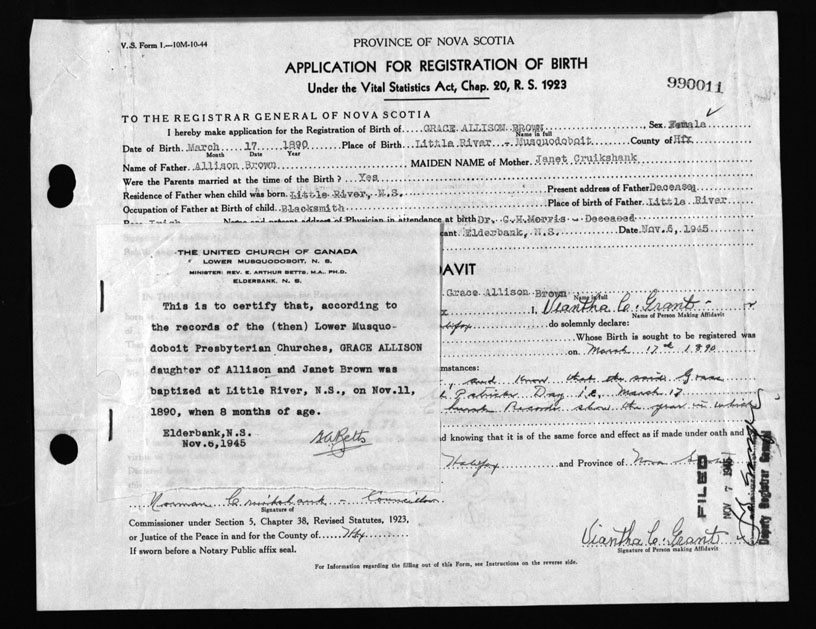 V. S. Form 1.—10M-10-44
PROVINCE OF NOVA SCOTIA
APPLICATION FOR REGISTRATION OF BIRTH
Under the Vital Statistics Act, Chap. 20, R. S. 1923
990011
TO THE REGISTRAR GENERAL OF NOVA SCOTIA
I hereby make application for the Registration of Birth of GRACE ALLISON BROWN, Sex Female
Name in full
Date of Birth March 17 1890 Place of Birth Little River - Musquodoboit County of Hfx
Month Date Year
Name of Father Allison Brown MAIDEN NAME of Mother Janet Cruikshank
Were the Parents married at the time of the Birth? Yes
Residence of Father when child was born Little River, N.S. Present address of Father Deceased
Occupation of Father at Birth of child Blacksmith Place of birth of Father Little River
Name and present address of Physician in attendance at birth Dr. C.H.Morris - Deceased
cant. Elderbank, N.S. Date Nov.6, 1945
THE UNITED CHURCH OF CANADA
LOWER MUSQUODOBOIT, N. S.
MINISTER: REV. E. ARTHUR BETTS, M.A., PH.D.
ELDERBANK, N. S.
This is to certify that, according to
the records of the (then) Lower Musquo-
doboit Presbyterian Churches, GRACE ALLISON
daughter of Allison and Janet Brown was
baptized at Little River, N.S., on Nov.11,
1890, when 8 months of age.
Elderbank,N.S.
Nov.6,1945
EABetts
AVIT
Grace Allison Brown
Name in full
I, Viantha C. Grant
Name of Person Making Affidavit
Halifax do solemnly declare:
Whose Birth is sought to be registered was
on March 17th 1890
mstances:
and know that the said Grace
Patricks Day i.e. March 17
Church Records show the year in which
d knowing that it is of the same force and effect as if made under oath and
Halifax and Province of Nova Scotia
FILED
NOV 7 1945
Deputy Registrar General
Norman Cruikshank - Councillor
Signature of
Commissioner under Section 5, Chapter 38, Revised Statutes, 1923,
or Justice of the Peace in and for the County of Hfx
If sworn before a Notary Public affix seal.
Viantha C. Grant
Signature of Person making Affidavit
For Information regarding the filling out of this Form, see Instructions on the reverse side.